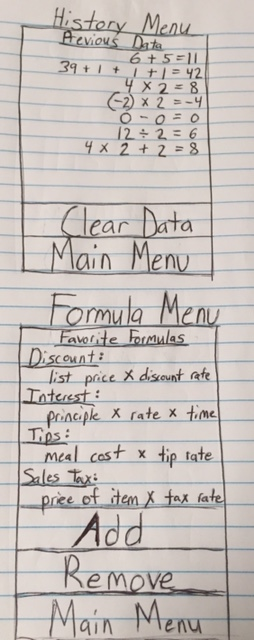 History Menu
Previous Data
6 + 5 = 11
39 + 1 + 1 + 1 = 42
4 × 2 = 8
(-2) × 2 = -4
0 - 0 = 0
12 ÷ 2 = 6
4 × 2 + 2 = 8
Clear Data
Main Menu
Formula Menu
Favorite Formulas
Discount:
list price × discount rate
Interest:
principle × rate × time
Tips:
meal cost × tip rate
Sales Tax:
price of item × tax rate
Add
Remove
Main Menu